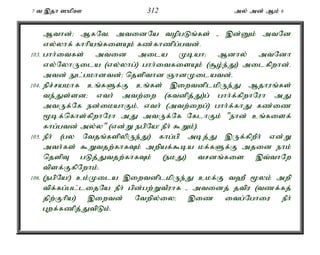 7 வஇதா ஸமிஊ 312 அல் அன் ஆம் 6
ஆவான்; ஆகவே, அவனையே வழிபடுங்கள் - இன்னும் அவனே
எல்லாக் காரியங்களையும் கண்காணிப்பவன்.
103. பார்வைகள் அவனை அடைய முடியா; ஆனால் அவனோ
எல்லோருடைய (எல்லாப்) பார்வைகளையும் (சூழ்ந்து) அடைகிறான்.
அவன் நுட்பமானவன்; தெளிவான ஞானமுடையவன்.
104. நிச்சயமாக உங்களுக்கு உங்கள் இறைவனிடமிருந்து ஆதாரங்கள்
வந்துள்ளன; எவர் அவற்றை (கவனித்து)ப் பார்க்கிறாரோ அது
அவருக்கே நன்மையாகும், எவர் (அவற்றைப்) பார்க்காது கண்ணை
மூடிக்கொள்கிறாரோ அது அவருக்கே கேடாகும் "நான் உங்களைக்
காப்பவன் அல்ல" (என்று நபியே! நீர் கூறும்).
105. நீர் (பல வேதங்களிலிருந்து) காப்பி அடித்து இருக்கிறீர் என்று
அவர்கள் கூறுவதற்காகவும் அறியக்கூடிய மக்களுக்கு அதனை நாம்
தெளிவு படுத்துவதற்காகவும் (நமது) வசனங்களை இவ்வாறே
விளக்குகிறோம்.
106. (நபியே!) உம்முடைய இறைவனிடமிருந்து உமக்கு வஹீ மூலம் அறி
விக்கப்பட்டதையே நீர் பின்பற்றுவீராக - அவனைத் தவிர (வணக்கத்
திற்குரிய) இறைவன் வேறில்லை; இணை வைப்போரை நீர்
புறக்கணித்துவிடும்.